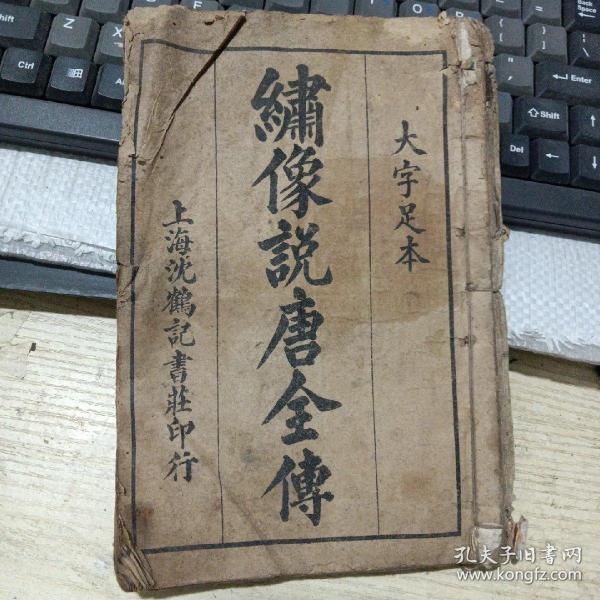 大字足本
繡像説唐全傳
上海沈鶴記書莊印行
Enter
Shift
Del
End
孔夫子旧书网
www.kongfz.com